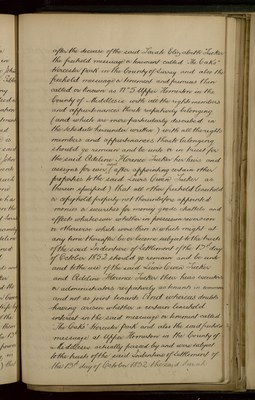 after the decease of the said Sarah Elizabeth Tucker
the freehold messuage or tenement called The Oaks
Worcester Park in the County of Surrey and also the
freehold messuage or tenement and premises then
called or known as No 5 Upper Homerton in the
County of Middlesex with all the rights members
and appurtenances thereto respectively belonging
(and which are more particularly described in
the schedule hereunder written) with all the rights
members and appurtenances thereto belonging
should go remain and be and in trust for
the said Adeline Florence Tucker her heirs and
assigns for ever (after appointing certain other
properties to the said Lewis Tucker as
therein specified) that all other freehold leasehold
or copyhold property not thereinbefore appointed
monies or securities for money goods chattels and
effects whatsoever whether in possession reversion
or otherwise which was then or which might at
any time thereafter be or become subject to the trusts
of the said Indenture of Settlement of the 13th day
of October 1852 should go remain and be unto
and to the use of the said Lewis Tucker
and Adeline Florence Tucker their heirs executors
or administrators respectively as tenants in common
and not as joint tenants And whereas doubts
having arisen whether a certain leasehold
interest in the said messuage or tenement called
The Oaks Worcester Park and also the said freehold
messuage at Upper Homerton in the County of
Middlesex actually passed by and were subject
to the trusts of the said Indenture of Settlement of
the 13th day of October 1852 the said Sarah